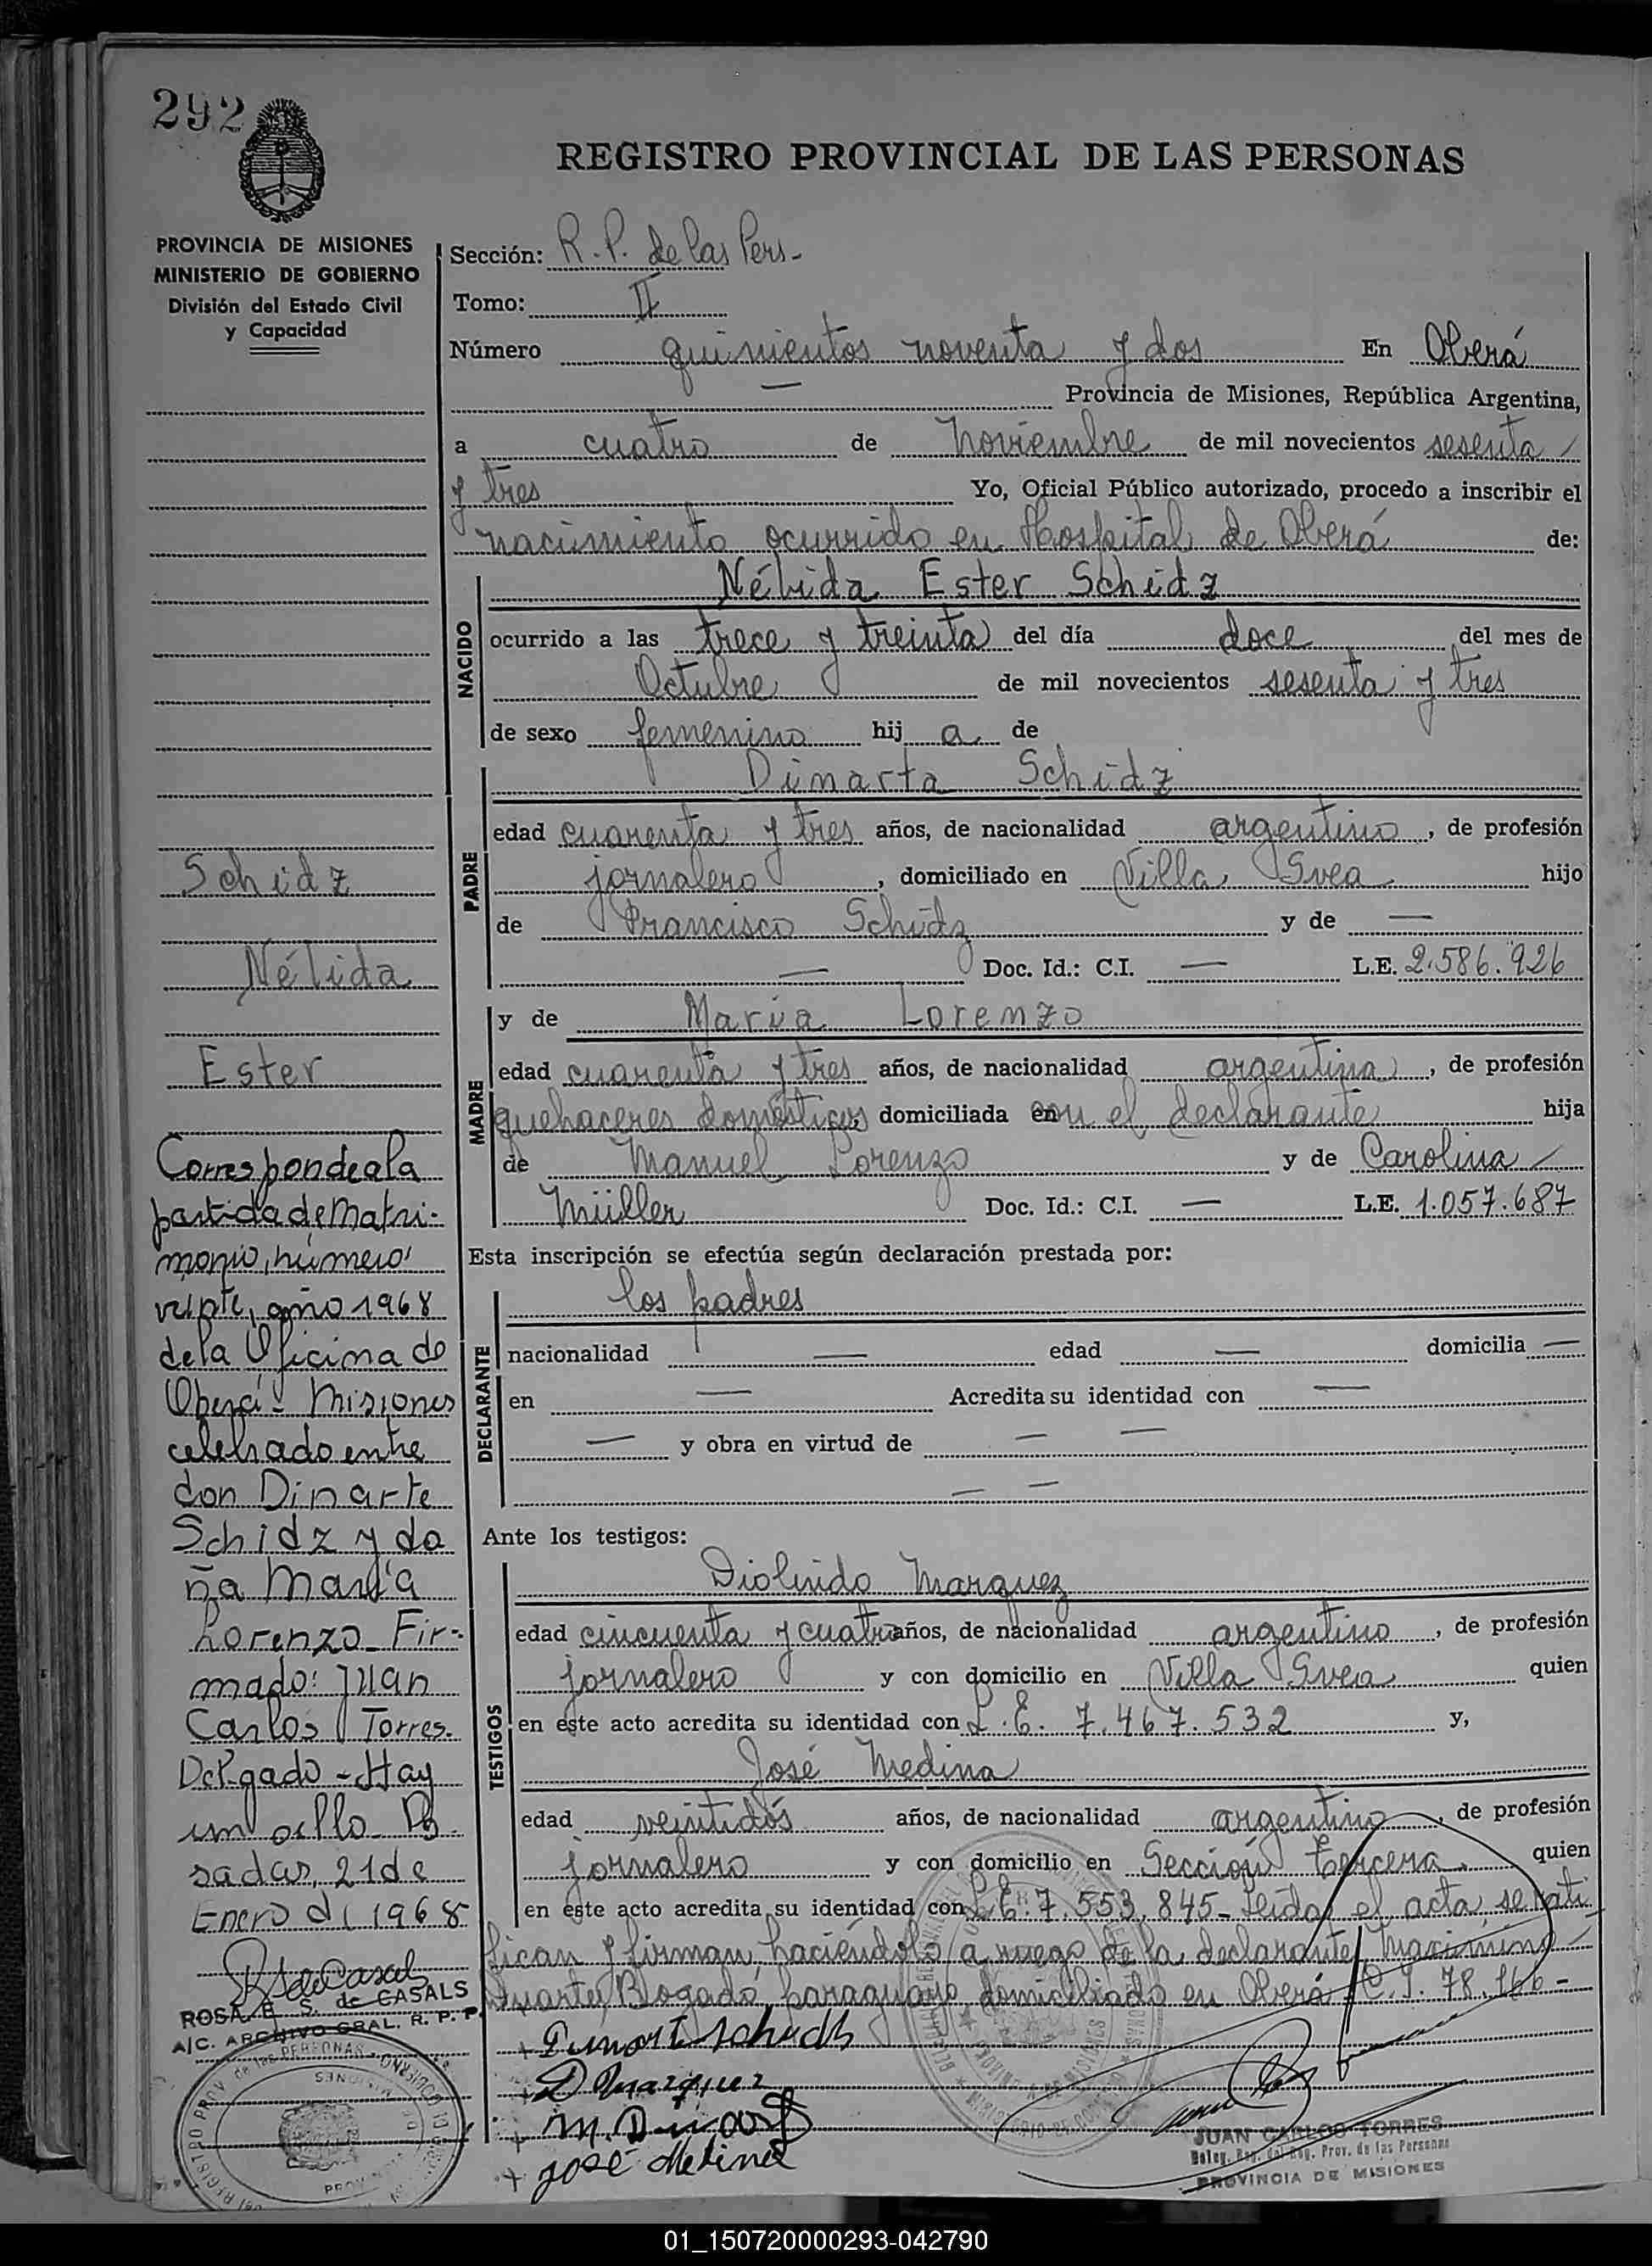 292
REGISTRO PROVINCIAL DE LAS PERSONAS
PROVINCIA DE MISIONES
MINISTERIO DE GOBIERNO
División del Estado Civil
y Capacidad
Sección: R. P. de las Pers-
Tomo: II
Número quinientos noventa y dos En Oberá
— Provincia de Misiones, República Argentina,
a cuatro de noviembre de mil novecientos sesenta
y tres Yo, Oficial Público autorizado, procedo a inscribir el
nacimiento ocurrido en Hospital de Oberá de:
NACIDO
Nélida Ester Schidz
ocurrido a las trece y treinta del día doce del mes de
Octubre de mil novecientos sesenta y tres
de sexo femenino hij a de
PADRE
Dinarta Schidz
edad cuarenta y tres años, de nacionalidad argentino, de profesión
jornalero, domiciliado en Villa Svea hijo
de Francisco Schidz y de —
— Doc. Id.: C.I. — L.E. 2.586.926
MADRE
y de María Lorenzo
edad cuarenta y tres años, de nacionalidad argentina, de profesión
quehaceres domésticos domiciliada en con el declarante hija
de Manuel Lorenzo y de Carolina
Müller Doc. Id.: C.I. — L.E. 1.057.687
Esta inscripción se efectúa según declaración prestada por:
DECLARANTE
los padres
nacionalidad — edad — domicilia —
en — Acredita su identidad con —
— y obra en virtud de — —
— —
Ante los testigos:
TESTIGOS
Diolindo Marquez
edad cincuenta y cuatro años, de nacionalidad argentino, de profesión
jornalero y con domicilio en Villa Svea quien
en este acto acredita su identidad con L.E. 7.467.532 y,
José Medina
edad veintidós años, de nacionalidad argentino, de profesión
jornalero y con domicilio en Sección tercera quien
en este acto acredita su identidad con L.E. 7.553.845- Leída el acta, se rati
fican y firman, haciéndolo a ruego de la declarante Maximino
Duarte Bogado, paraguayo domiciliado en Oberá C.I. 78.166-
D Marquez
José Medina
JUAN CARLOS TORRES
Deleg. Reg. del Reg. Prov. de las Personas
PROVINCIA DE MISIONES
Schidz
Nélida
Ester
Corresponde a la
partida de Matri-
monio, número
veinte, año 1968
de la Oficina de
Oberá- Misiones
celebrado entre
don Dinarte
Schidz y do
ña María
Lorenzo- Fir-
mado: Juan
Carlos Torres.
Delgado - Hay
un sello- Po
sadas, 21 de
Enero de 1968
ROSA E. S. de CASALS
A/C. ARCHIVO GRAL. R. P. P.
01_150720000293-042790